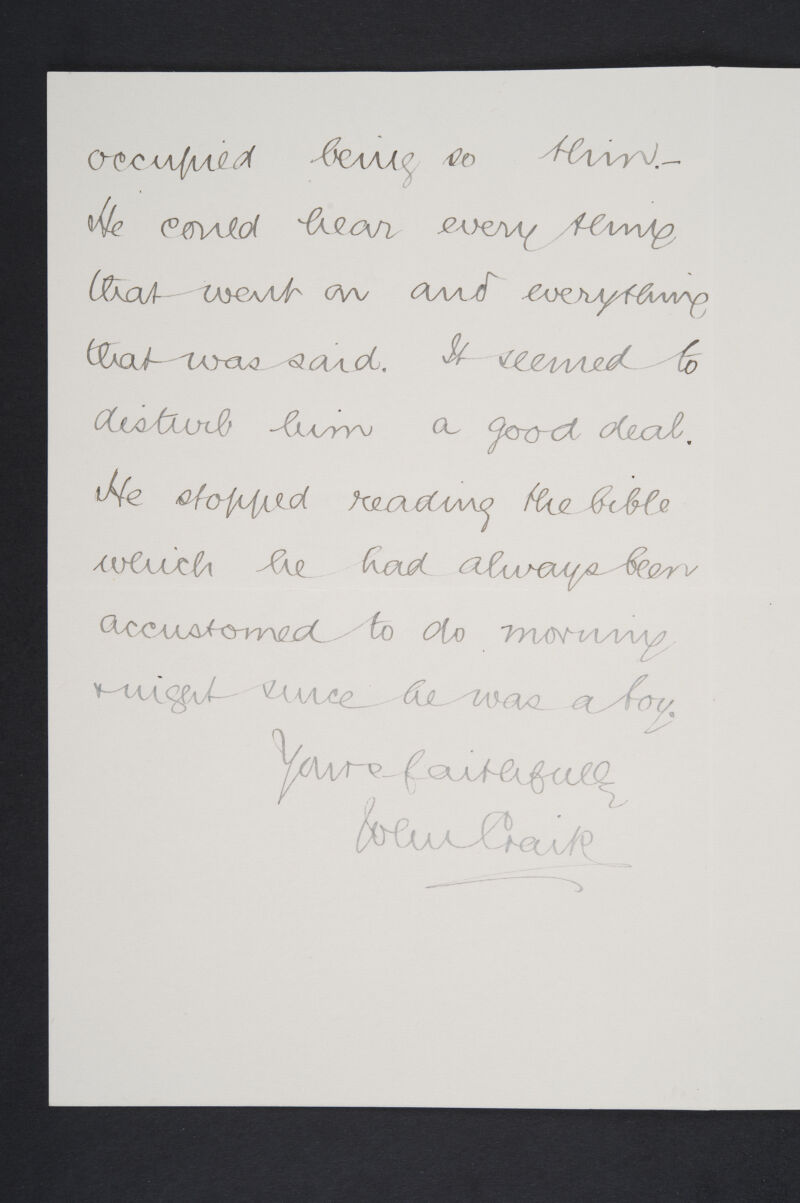 occupied being so thin.—
He could hear every thing
that went on and everything
that was said. It seemed to
disturb him a good deal.
He stopped reading the bible
which he had always been
accustomed to do morning
& night since he was a boy.
Yours faithfully
John Craik